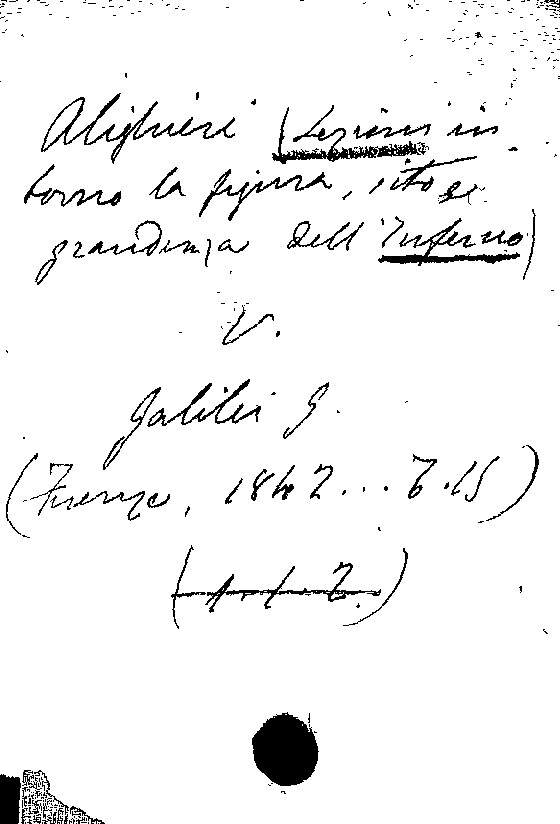 Alighieri (Lezioni in
torno la figura, sito e
grandenza dell'Inferno)
V.
Galilei G.
(Firenze, 1842... T.15)
(1.1.7.)